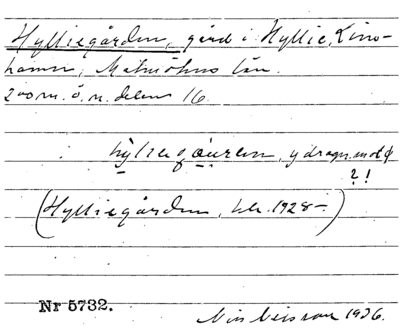 Hylliegården, gård i Hyllie, Lim-
hamn, Malmöhus län.
200 m. ö. n. delen 16
hýlieg
(Hylliegården, tlk. 1928-)
? !
Nr 5732.
Nils Nilsson 1936.